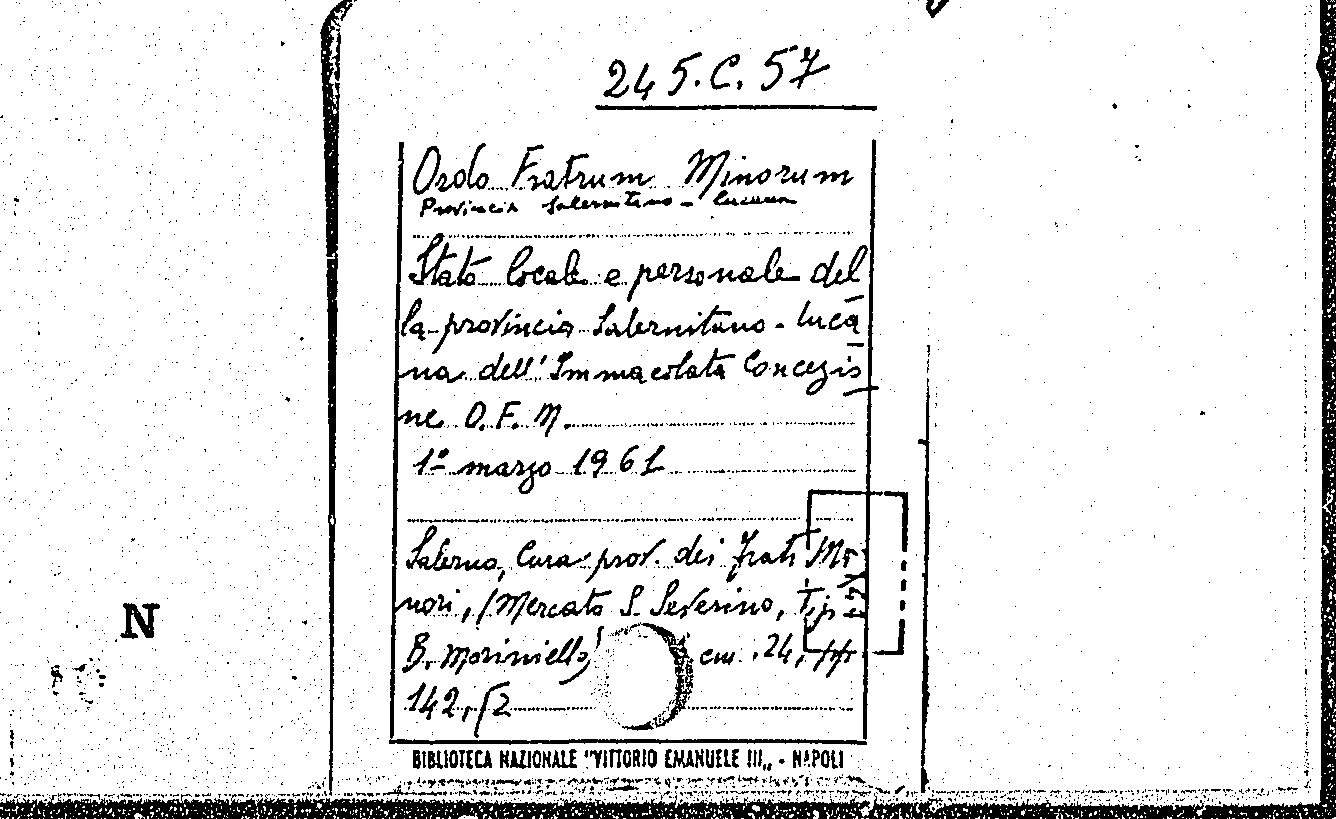 245.C.57
Ordo Fratrum Minorum
Provincia Salernitano - Lucana
Stato locale e personale del
la provincia Salernitano - Luca
na dell'Immacolata Concezio
ne O.F.M.
1º marzo 1961
Salerno, Curia prov. dei Frati Mi
nori, /Mercato S. Severino, Tip
B. Moriniello/ cm. 24, pp.
142, [2
N
BIBLIOTECA NAZIONALE "VITTORIO EMANUELE III„ - NAPOLI